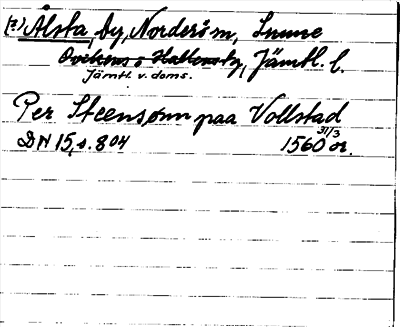 (?) Ålsta, by, Norderöm, Sunne
Ovikens o Hallens ty, Jämtl. l.
Jämtl. v. doms.
Per Steensønn paa Vollstad
DN 15, s. 804 1560 31/3 or.